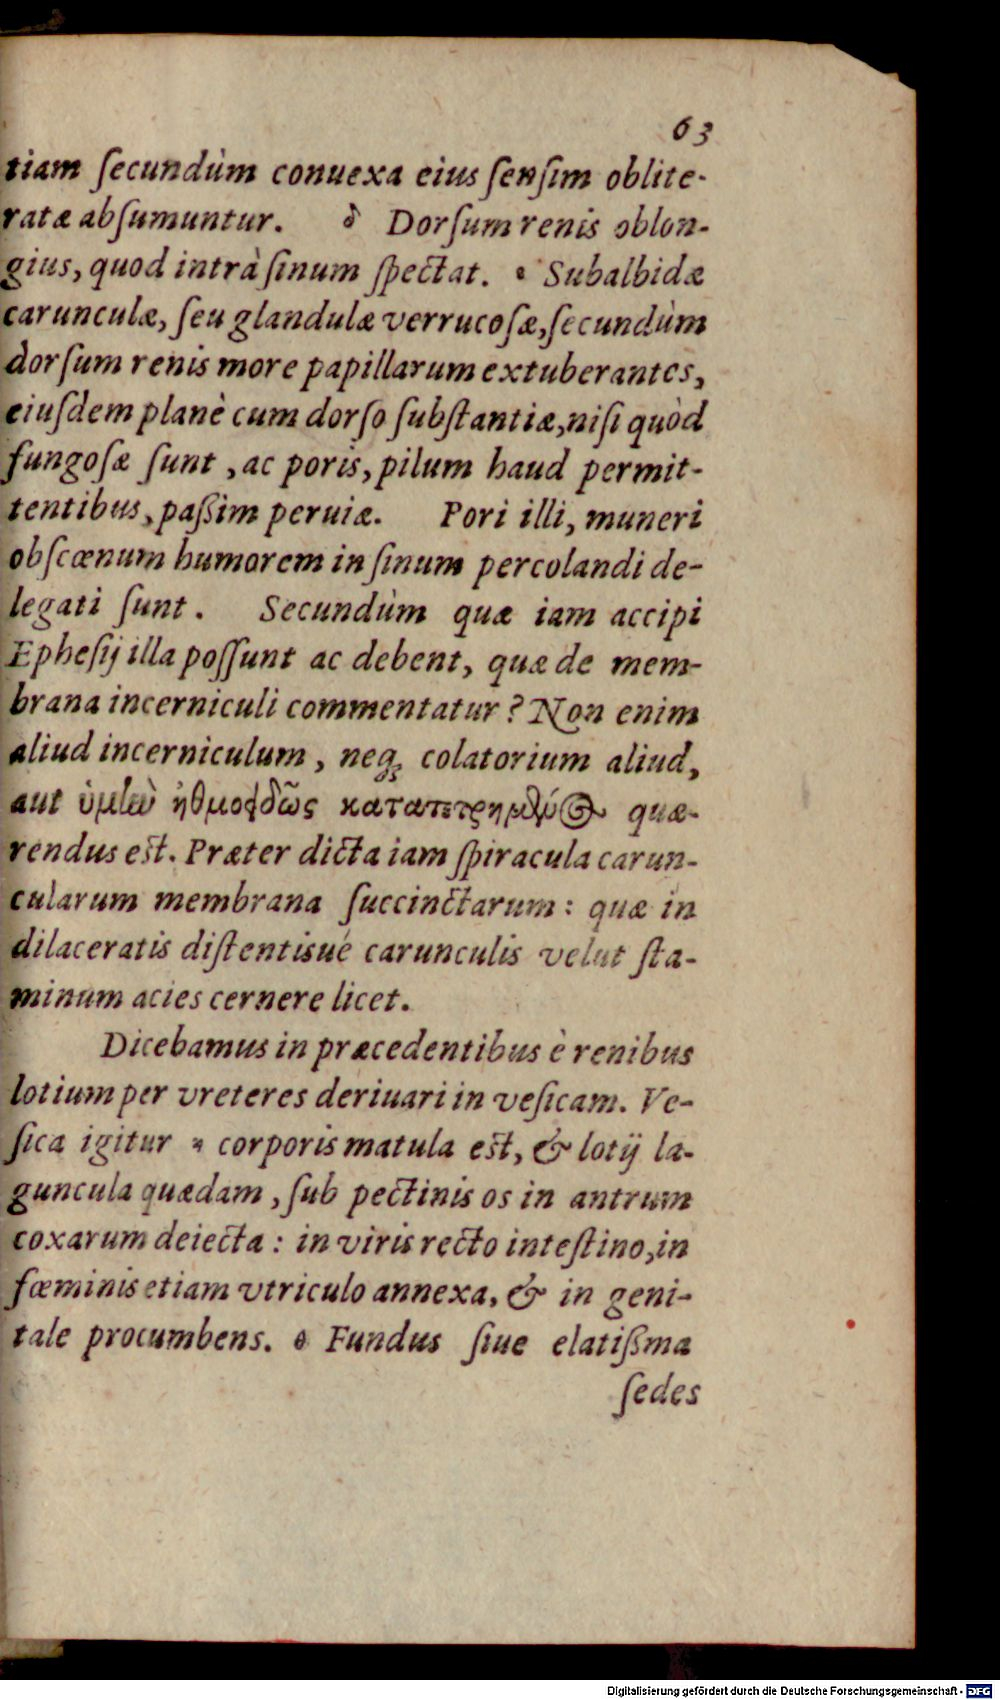 63
tiam ſecundùm conuexa eius ſenſim oblite-
ratæ abſumuntur. δ Dorſum renis oblon-
gius, quod intrà ſinum ſpectat. ε Subalbidæ
carunculæ, ſeu glandulæ verrucoſæ, ſecundùm
dorſum renis more papillarum extuberantes,
eiuſdem planè cum dorſo ſubſtantiæ, niſi quòd
fungoſæ ſunt, ac poris, pilum haud permit-
tentibus, paßim peruiæ. Pori illi, muneri
obſcœnum humorem in ſinum percolandi de-
legati ſunt. Secundùm quæ iam accipi
Epheſij illa poſſunt ac debent, quæ de mem-
brana incerniculi commentatur? Non enim
aliud incerniculum, neq; colatorium aliud,
aut quæ-
rendus est. Præter dicta iam ſpiracula carun-
cularum membrana ſuccinctarum: quæ in
dilaceratis diſtentisué carunculis velut ſta-
minum acies cernere licet.
Dicebamus in præcedentibus è renibus
lotium per vreteres deriuari in veſicam. Ve-
ſica igitur corporis matula est, & lotij la-
guncula quædam, ſub pectinis os in antrum
coxarum deiecta: in viris recto inteſtino, in
fœminis etiam vtriculo annexa, & in geni-
tale procumbens. Fundus ſiue elatißma
ſedes
Digitalisierung gefördert durch die Deutsche Forschungsgemeinschaft - DFG